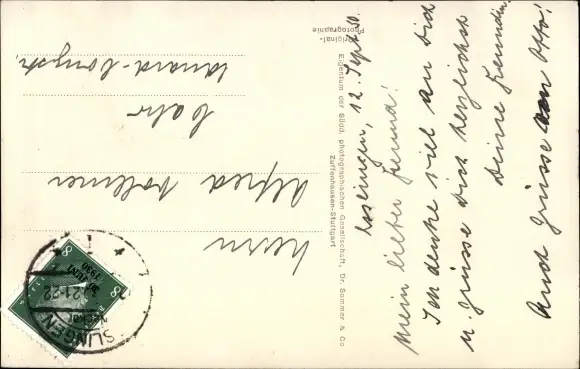 Esslingen, 12. Sept 30.
Mein lieber Freund!
Ich denke viel an Dich
u. grüsse Dich herzlichst
Deine Freundin
Auch Grüsse von Otto!
Original-
Photographie
Eigentum der Südd. photographischen Gesellschaft, Dr. Sommer & Co
Zuffenhausen-Stuttgart
Herrn
Alfred Vollmer
Lahr
8
8
SLINGEN
21-22